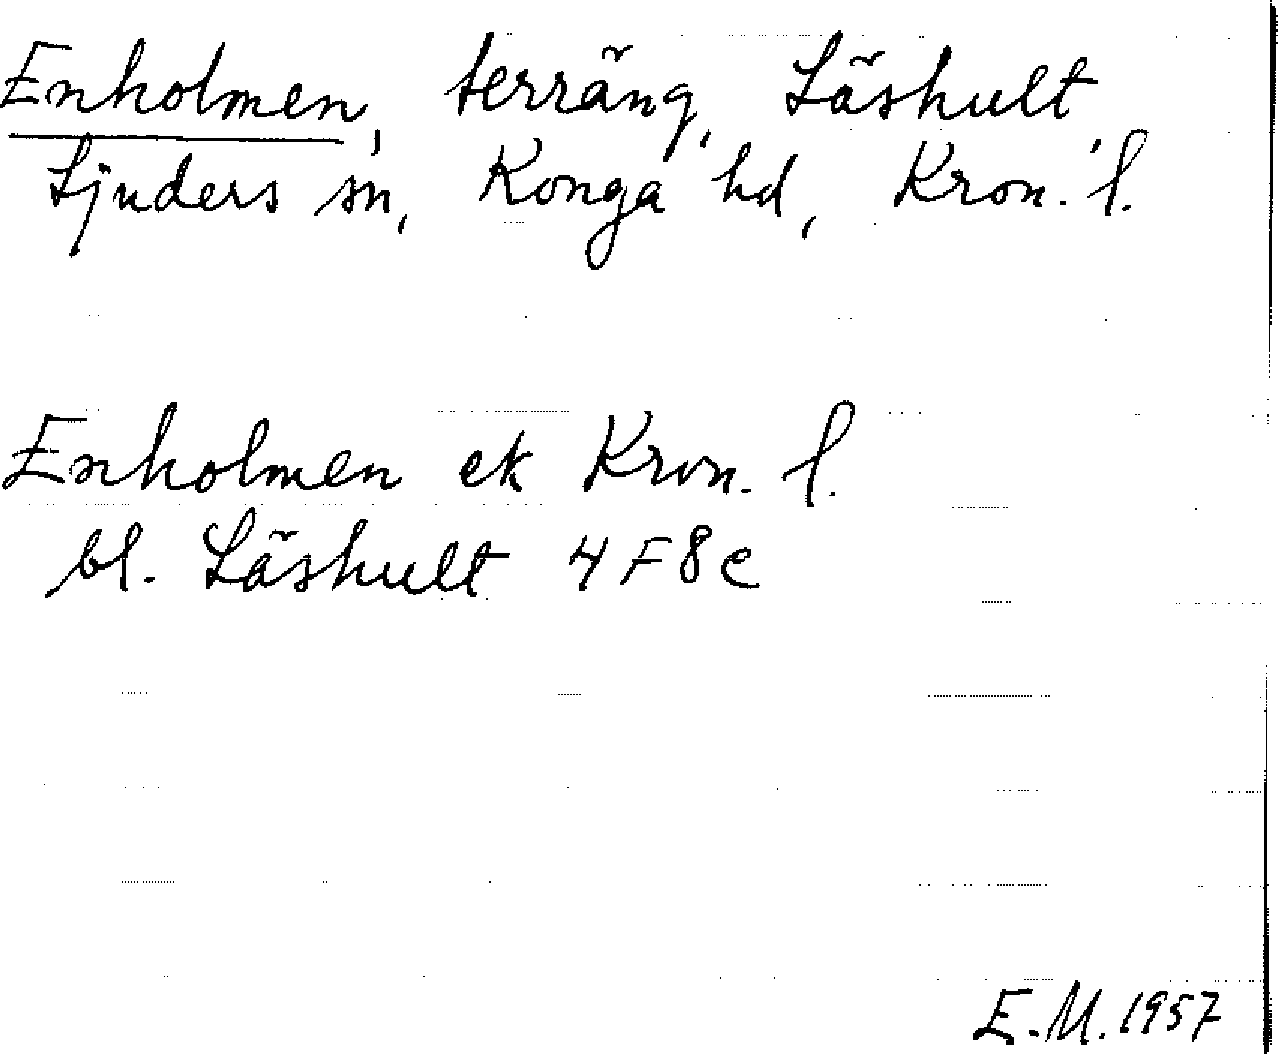 Enholmen, terräng, Läshult,
Ljuders sn, Konga hd, Kron. l.
Enholmen ek Kron. l.
bl. Läshult 4F8e
E.M. 1957